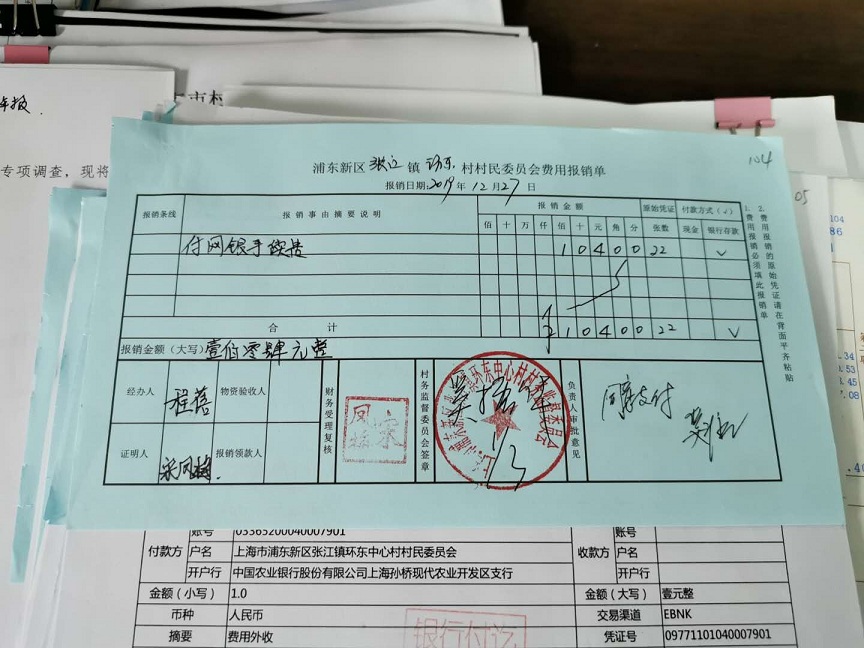 年报.
专项调查，现将
104
浦东新区 张江 镇 环东 村村民委员会费用报销单
报销日期：2019年12月27日
报销条线 报销事由摘要说明 报销金额 原始凭证 付款方式（√）
佰 十 万 仟 佰 十 元 角 分 张数 现金 银行存款
付网银手续费 1 0 4 0 0 22 √
合计 ¥ 1 0 4 0 0 22 √
报销金额（大写）壹佰零肆元整
经办人 程蓓 物资验收人
证明人 宋凤梅. 报销领款人
财务受理复核
村务监督委员会签章
负责人审批意见
同意支付
05
104
86
.34
.53
.45
7.08
账号 03365200040007901 账号
付款方 户名 上海市浦东新区张江镇环东中心村村民委员会 收款方 户名
开户行 中国农业银行股份有限公司上海孙桥现代农业开发区支行 开户行
金额（小写） 1.0 金额（大写） 壹元整
币种 人民币 交易渠道 EBNK
摘要 费用外收 凭证号 09771101040007901
银行付讫